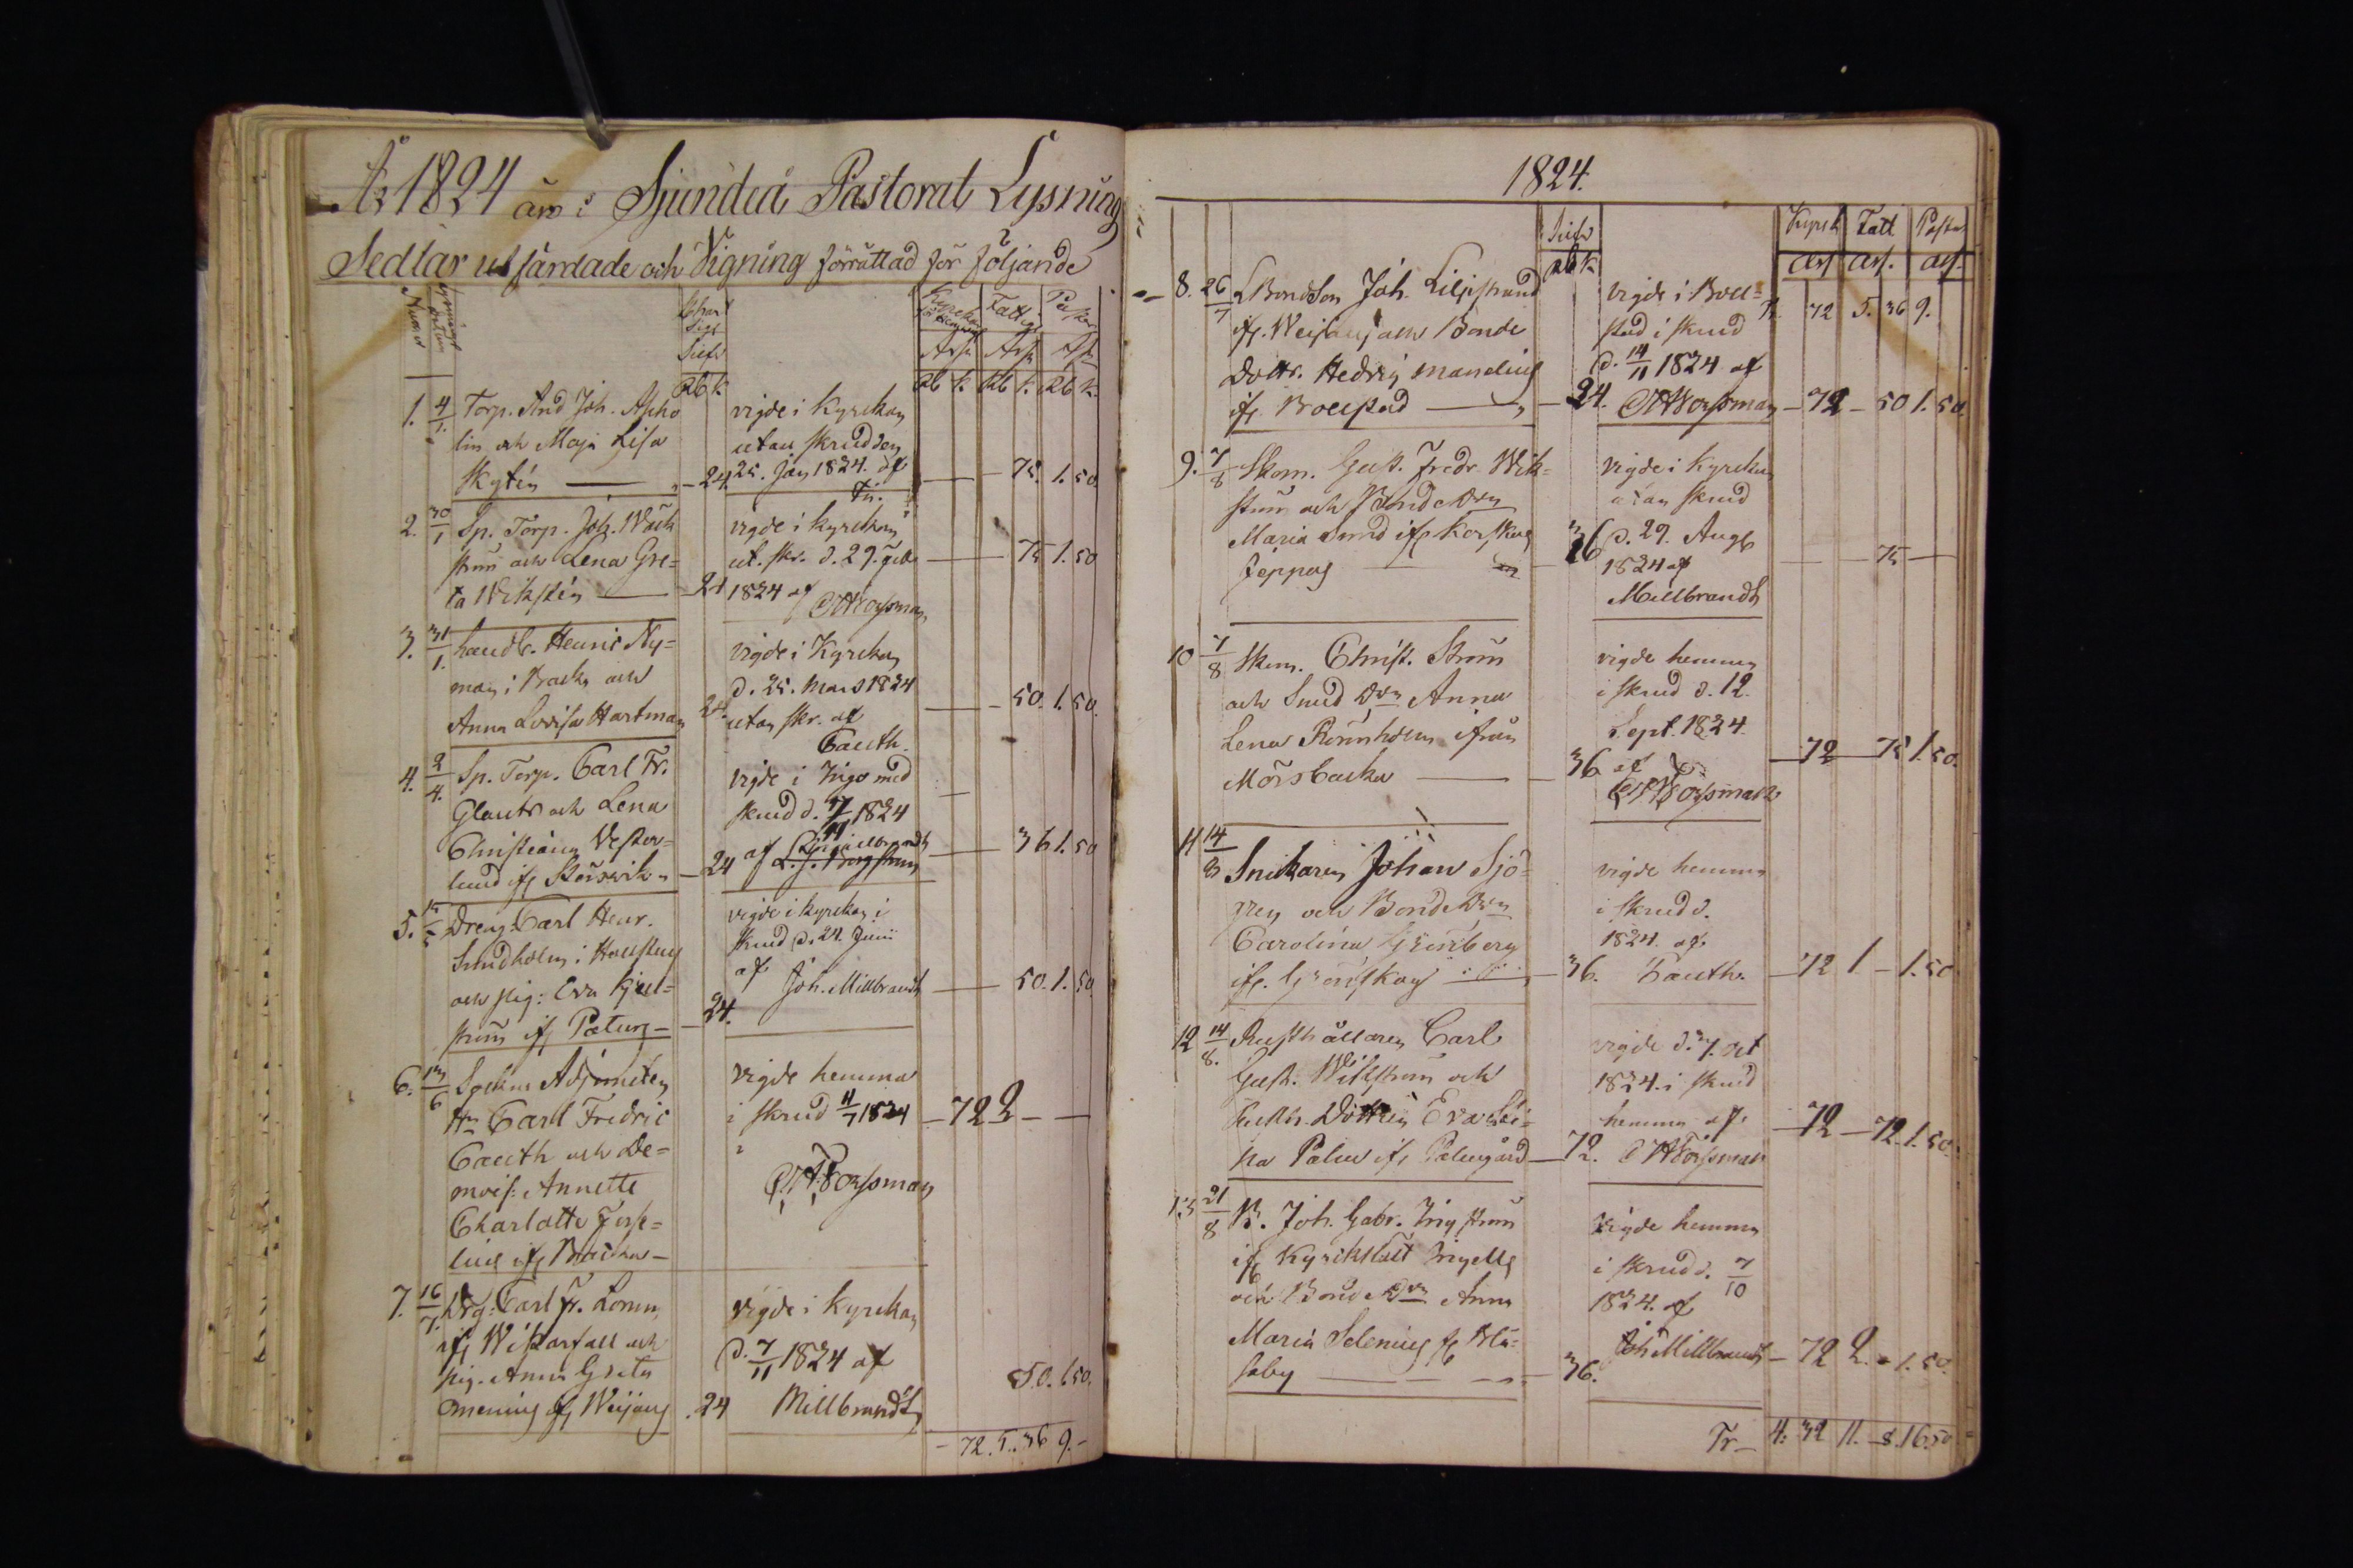 År 1824 äro i Sjundeå Pastorat Lysnings
Sedlar utfärdade och Vigning förrättad för följande
Numer
Kyrckan Fattig Pastor
Siefr
Rb k. Rb k. Rb k. Rb k.
1. 4/1. Torp. And Joh. Aspho
lin och Maja Lisa
Skytén — 24.
vigde i Kyrckan
utan skrud den
25. Jan 1824. af
75. 1.50
2. 30/1 Sp. Torp. Joh. Wäck
ström och Lena Gre=
ta Wikstén — 24
vigde i kyrckan
ut. skr. d. 29. feb
1824 af
CAForssman
75 1.50
3. 31/1. handl. Henric Ny=
man i Backa och
Anna Lovisa Hartman 24.
vigde i Kyrckan
d. 25. Mars 1824
utan skr. af
Cauth.
50. 1.50.
4. 2/4. Sp. Torp. Carl Fr.
och Lena
Christina Vester=
lund ifr — 24
vigde i Ingo med
skrud d. 1824
af
36 1.50
5. Dreng. Carl Henr.
Sundholm i
och pig: Eva Kjell=
ström ifr Päturn — 24.
vigde i kyrckan i
skrud d. 24. Junii
af Joh. Millbrandt
50. 1.50.
6. 13/6 Sockne Adjuncten
Hr Carl Fredric
Cauth och De=
mois: Annette
Charlotta
ifr Backa —
vigde hemma
i skrud 11/7 1824
CAForssman
— 72 2 — —
7. 16/7. Drg: Carl Fr. Lorn
ifr Wikarfall och
pig. Anna Greta
ifr Weijans . 24
vigde i Kyrckan
d. 7/11 1824 af
Millbrandt
50. 1.50.
— 72. 5. 36 9. —
1824.
Siefr Kyrck Fatt Past
Rb k
8. 26/7 Bondson Joh. Liljestrand
ifr. Weijans och Bonde
Dottr. Hedvig
ifr. Bollstad — 24.
vigde i Boll=
stad i skrud
d. 14/11 1824 af
CAForssman
72 5. 36 9.
— 72 — 50 1.50
9. 7/8 Skom. Gust. Fredr. Wik=
ström och Bonde Drn
Maria Sund ifr Korskulla
Jeppas — 36
vigde i Kyrckan
utan skrud
d. 29. Aug
1824 af
Millbrandt
— 75 —
10 7/8 Skom. Christ. Ström
och Smed Drn Anna
Lena Rönnholm ifrån
Mörsbacka — 36
vigde hemma
i skrud d. 12.
Sept. 1824.
af
CAForssman
— 72 — 75 1.50.
11 14/8 Snickaren Johan Sjö=
gren och Bonde Drn
Carolina Grönberg
ifr. Grönskog — 36.
vigde hemma
i skrud d.
1824. af.
Cauth.
— 72 1. — 1.50
12 14/8. Rusthållaren Carl
Gust. Wikström och
Rusth. Dottren Eva
Palm ifr Palmgård — 72.
vigde d. 7. Oct
1824. i skrud
hemma af.
CAForssman
— 72 — 72. 1.50.
13 21/8 B. Joh. Gabr.
ifr Kyrckslätt Ingells
och Bonde Drn Anna
Maria Selenius fr Blå=
saby — 36.
Vigde hemma
i skrud d. 7/10
1824. af
Joh Millbrandt
— 72 2. — 1.50.
Tr — 4. 32 11. — 8. 16.50